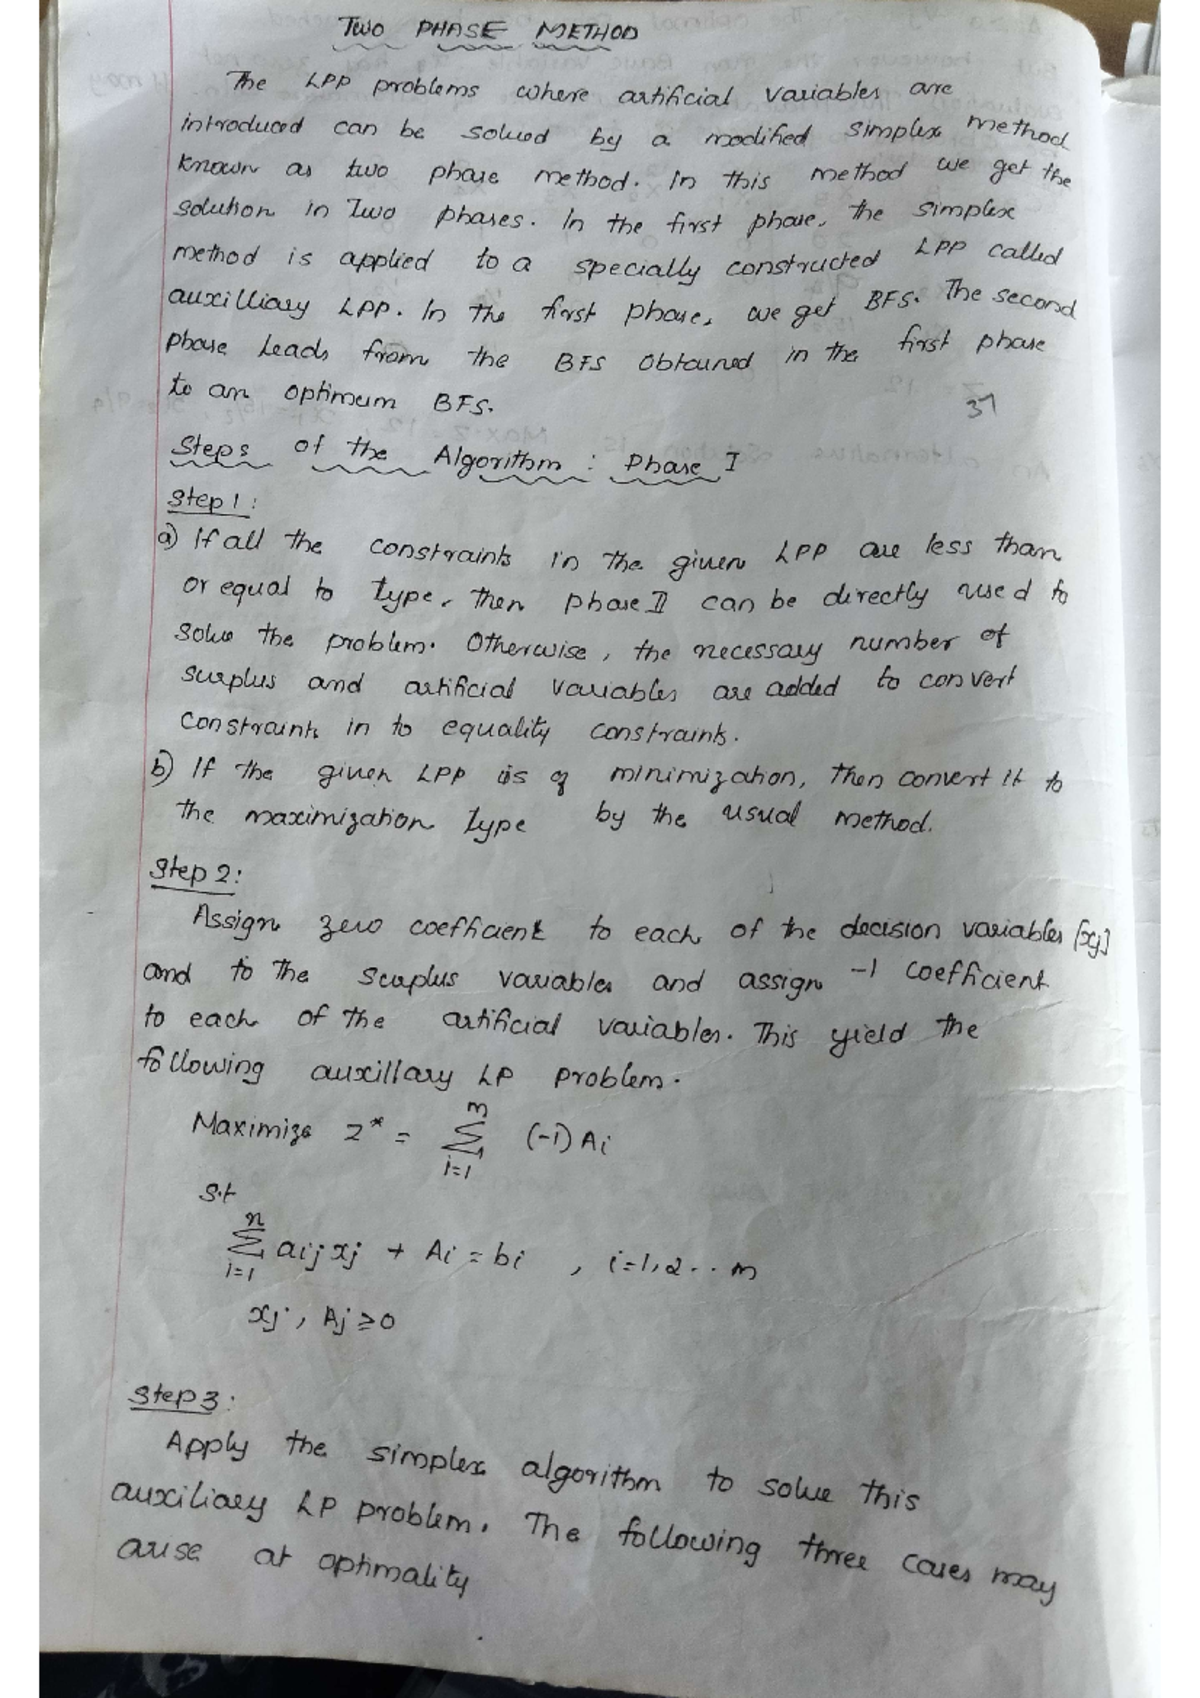 TWO PHASE METHOD
The LPP problems where artificial variables are
introduced can be solved by a modified simplex method
known as two phase method. In this method we get the
solution in Two phases. In the first phase, the simplex
method is applied to a specially constructed LPP called
auxilliary LPP. In the first phase, we get BFS. The second
phase Leads from the BFS obtained in the first phase
to an optimum BFS.
37
Steps of the Algorithm : Phase I
Step 1:
a) If all the constraints in the given LPP are less than
or equal to type, then phase II can be directly used to
solve the problem. Otherwise, the necessary number of
surplus and artificial variables are added to convert
constraints in to equality constraints.
b) If the given LPP is of minimization, then convert it to
the maximization type by the usual method.
Step 2:
Assign zero coefficient to each of the decision variables [xj]
and to the surplus variables and assign -1 coefficient
to each of the artificial variables. This yield the
following auxillary LP problem.
Maximize Z* = m Σ i=1 (-1) Ai
S.t
n Σ i=1 aij xj + Ai = bi , i=1,2...m
xj, Aj ≥ 0
Step 3:
Apply the simplex algorithm to solve this
auxiliary LP problem. The following three cases may
arise at optimality